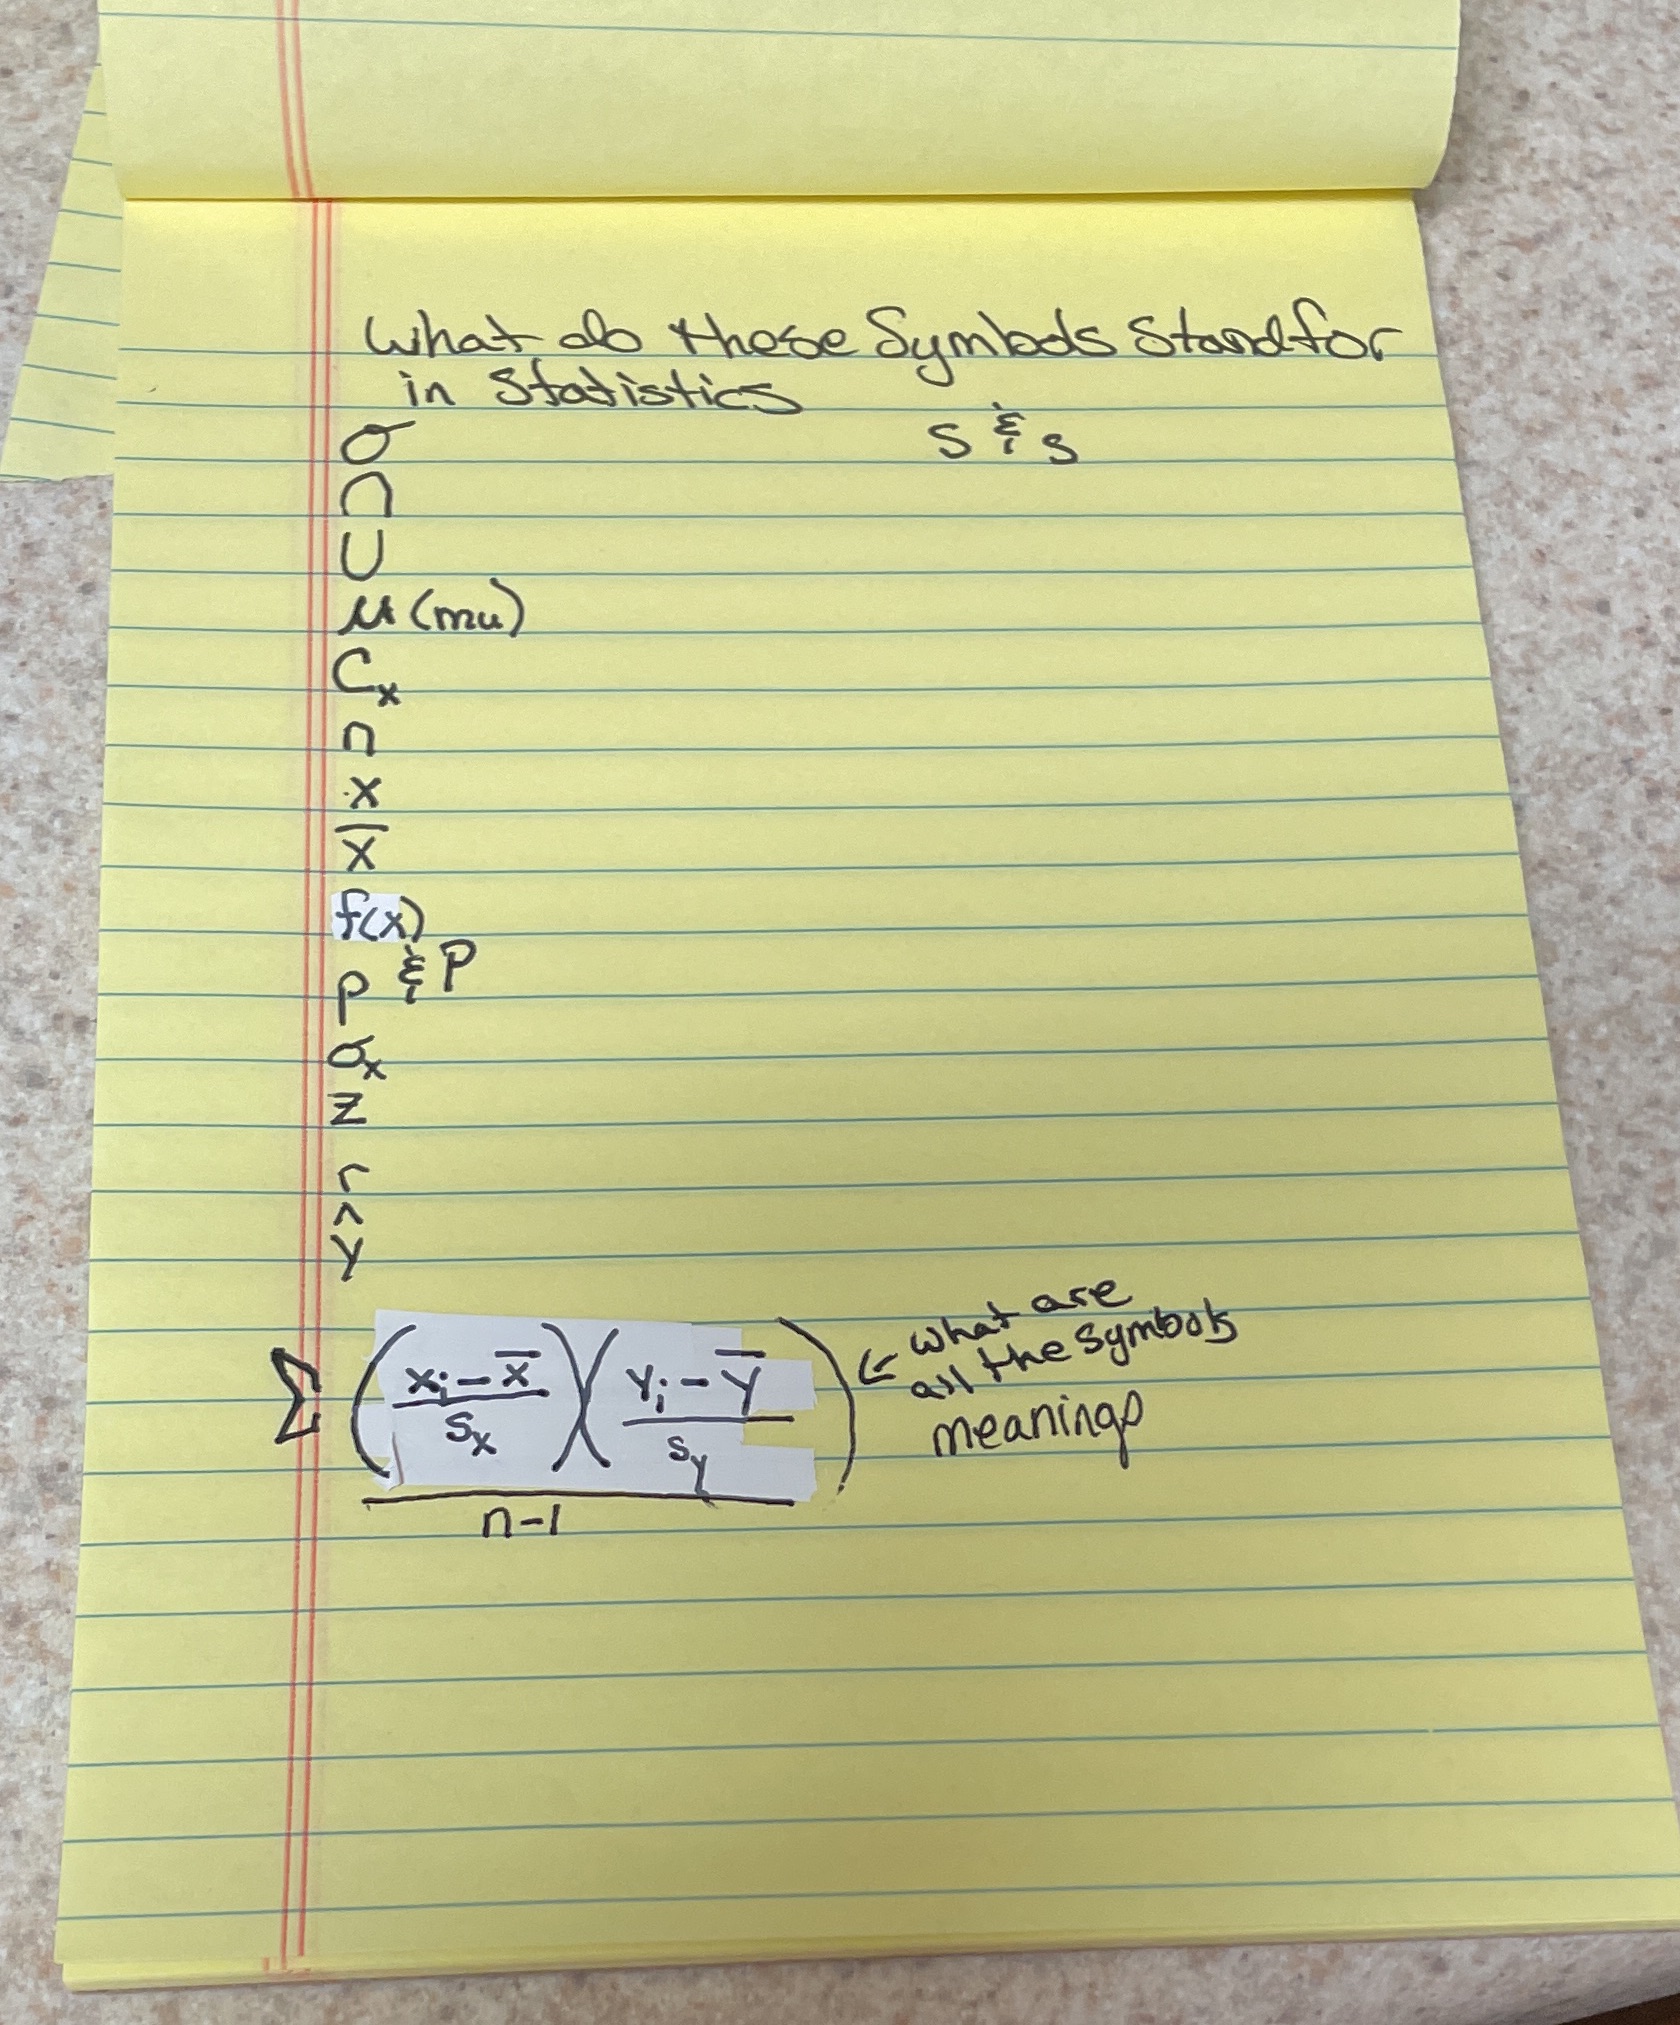 What do these Symbols Stand for
in Statistics
σ
S & s
∩
U
μ (mu)
Cx
n
x
x̄
f(x)
p & P
σx
z
r
ŷ
Σ ((xi - x̄)/sx)((yi - ȳ)/sy)
n-1
← what are
all the symbols
meanings